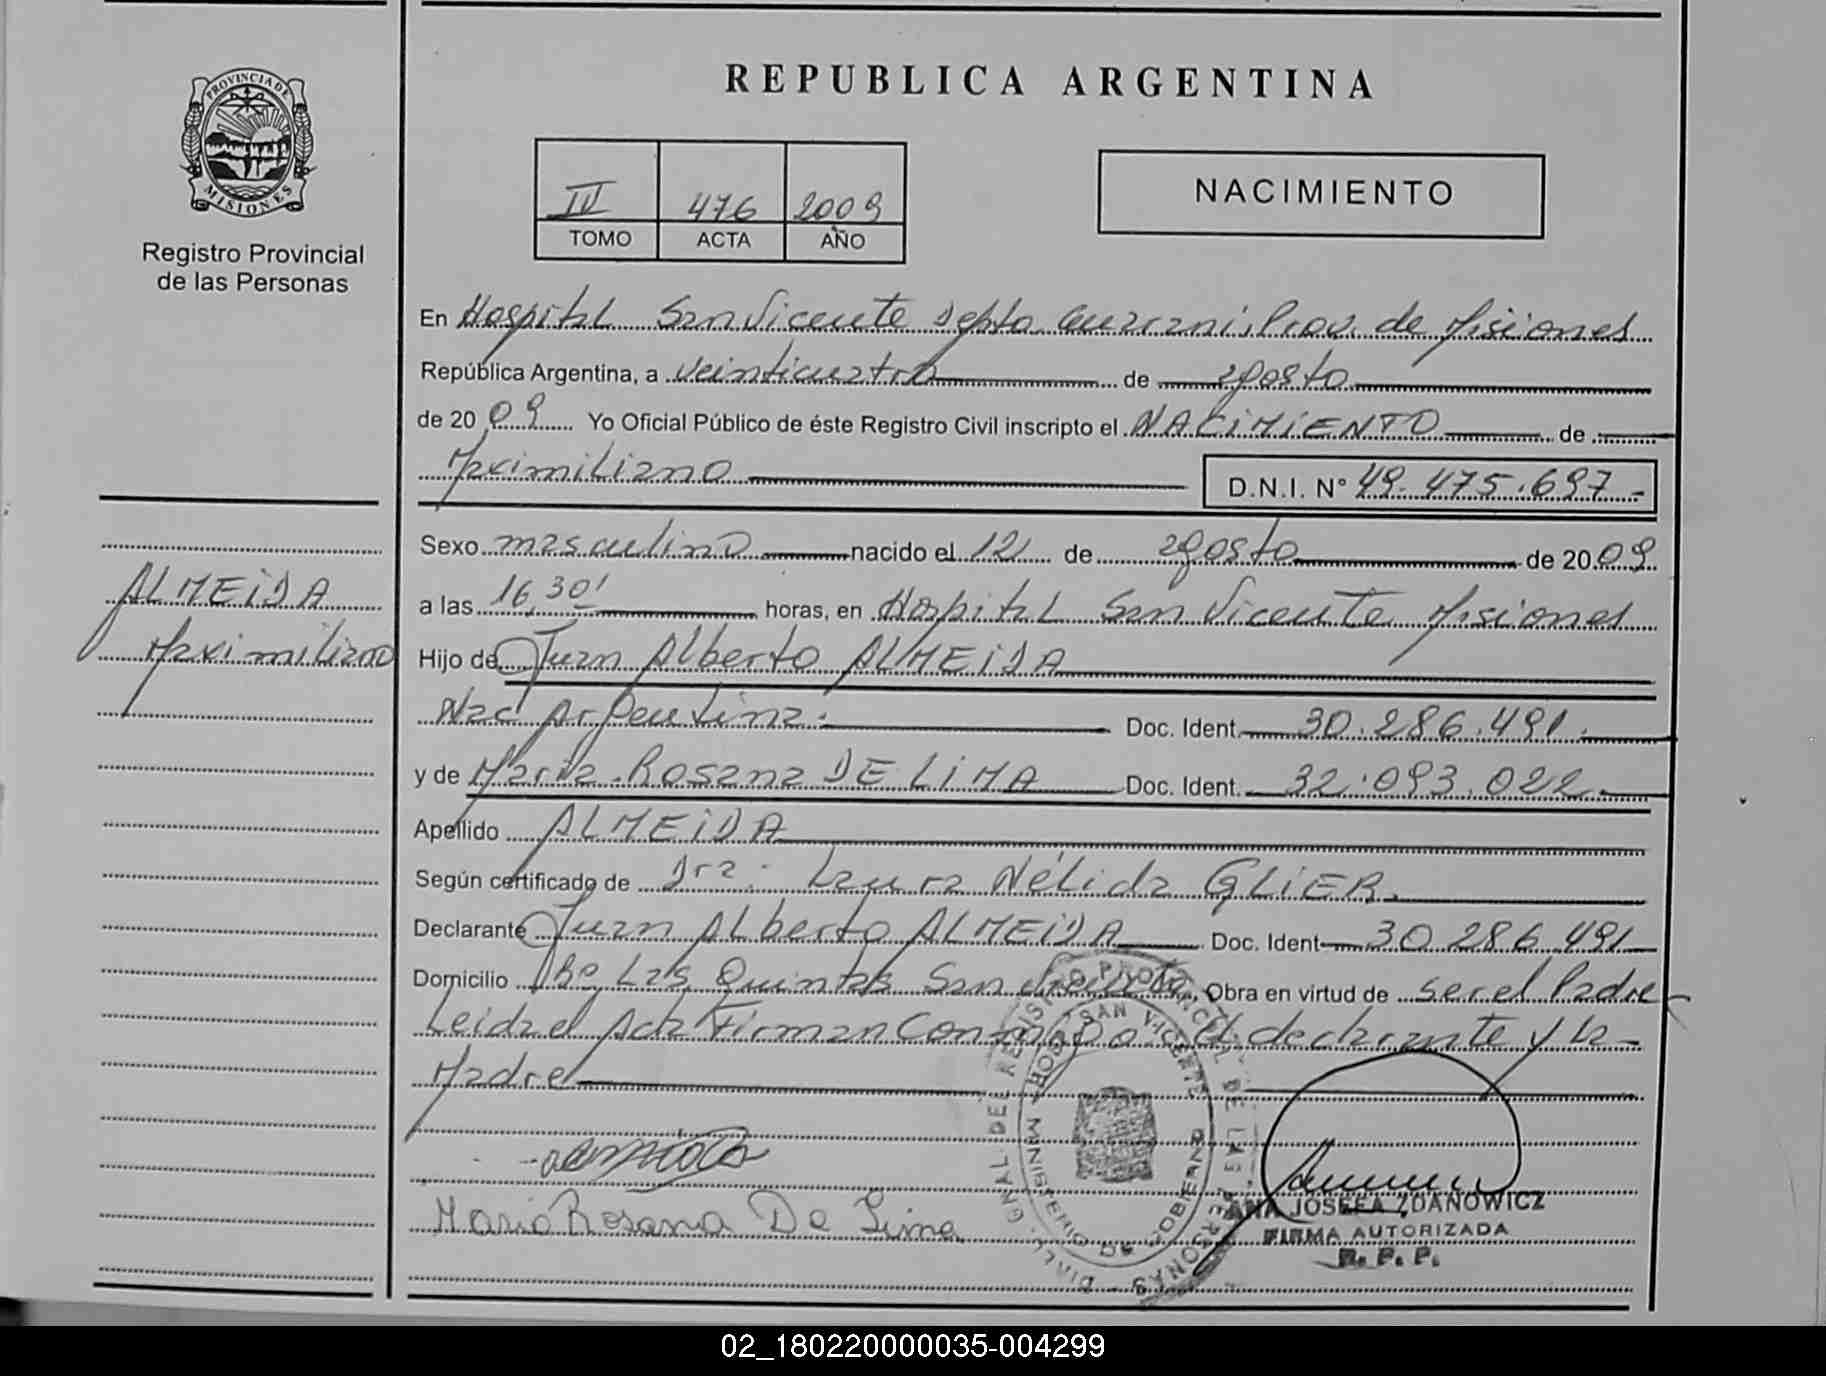 PROVINCIA DE
MISIONES
Registro Provincial
de las Personas
ALMEIDA
Maximiliano
REPUBLICA ARGENTINA
IV 476 2009
TOMO ACTA AÑO
NACIMIENTO
En Hospital San Vicente Depto Guarani, Prov. de Misiones
República Argentina, a veinticuatro de agosto
de 2009 Yo Oficial Público de éste Registro Civil inscripto el NACIMIENTO de
Maximiliano D.N.I. N° 49.475.697-
Sexo masculino nacido el 12 de agosto de 2009
a las 16,30' horas, en Hospital San Vicente Misiones
Hijo de Juan Alberto ALMEIDA
Nac Argentina. Doc. Ident. 30.286.491.
y de Maria Rosana DE LIMA Doc. Ident. 32.093.022.
Apellido ALMEIDA
Según certificado de Dra. Laura Nélida GLIER.
Declarante Juan Alberto ALMEIDA Doc. Ident 30 286 491
Domicilio Bo Las Quintas San Vicente, Obra en virtud de ser el Padre
Leida el Acta Firman Conmigo el declarante y la
Madre
Maria Rosana De Lima
DIAL. GRAL DEL REGISTRO PROVINCIAL DE LAS PERSONAS
HOSP. SAN VICENTE
MINISTERIO DE GOBIERNO
ANA JOSEFA ZDANOWICZ
FIRMA AUTORIZADA
R. P. P.
02_180220000035-004299